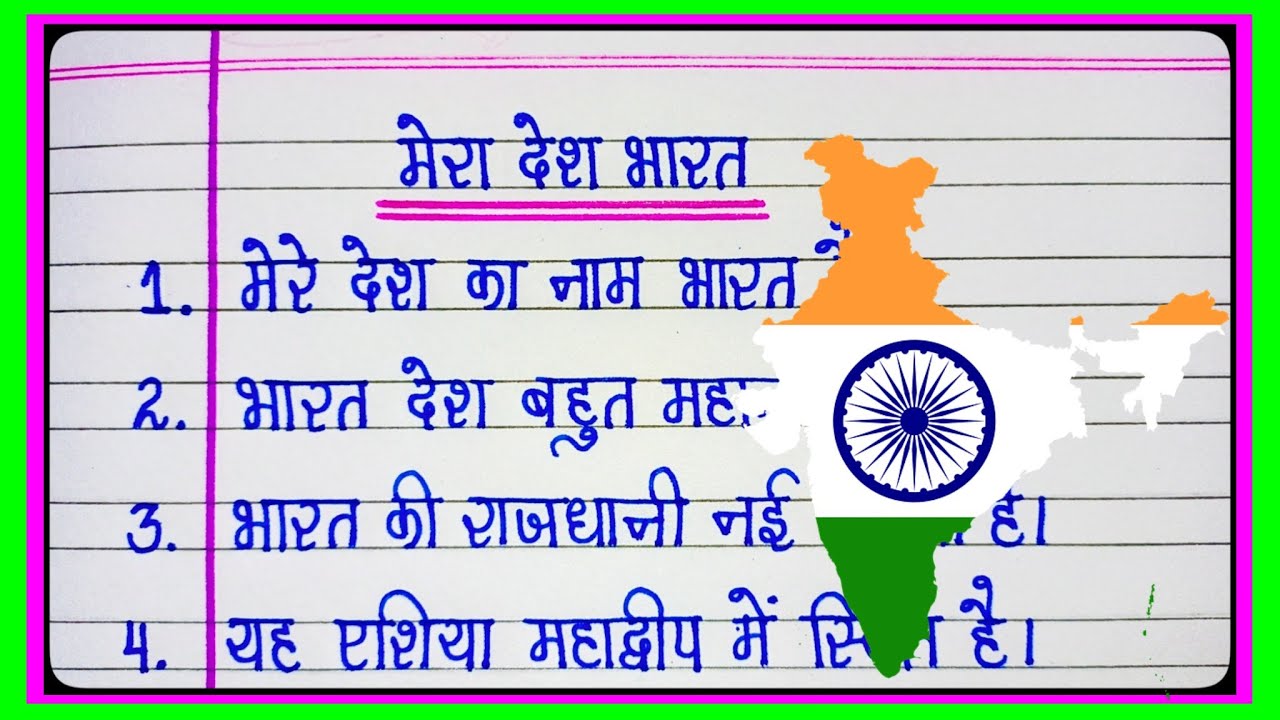 मेरा देश भारत
1. मेरे देश का नाम भारत
2. भारत देश बहुत
3. भारत की राजधानी नई है।
4. यह एशिया महाद्वीप में है।